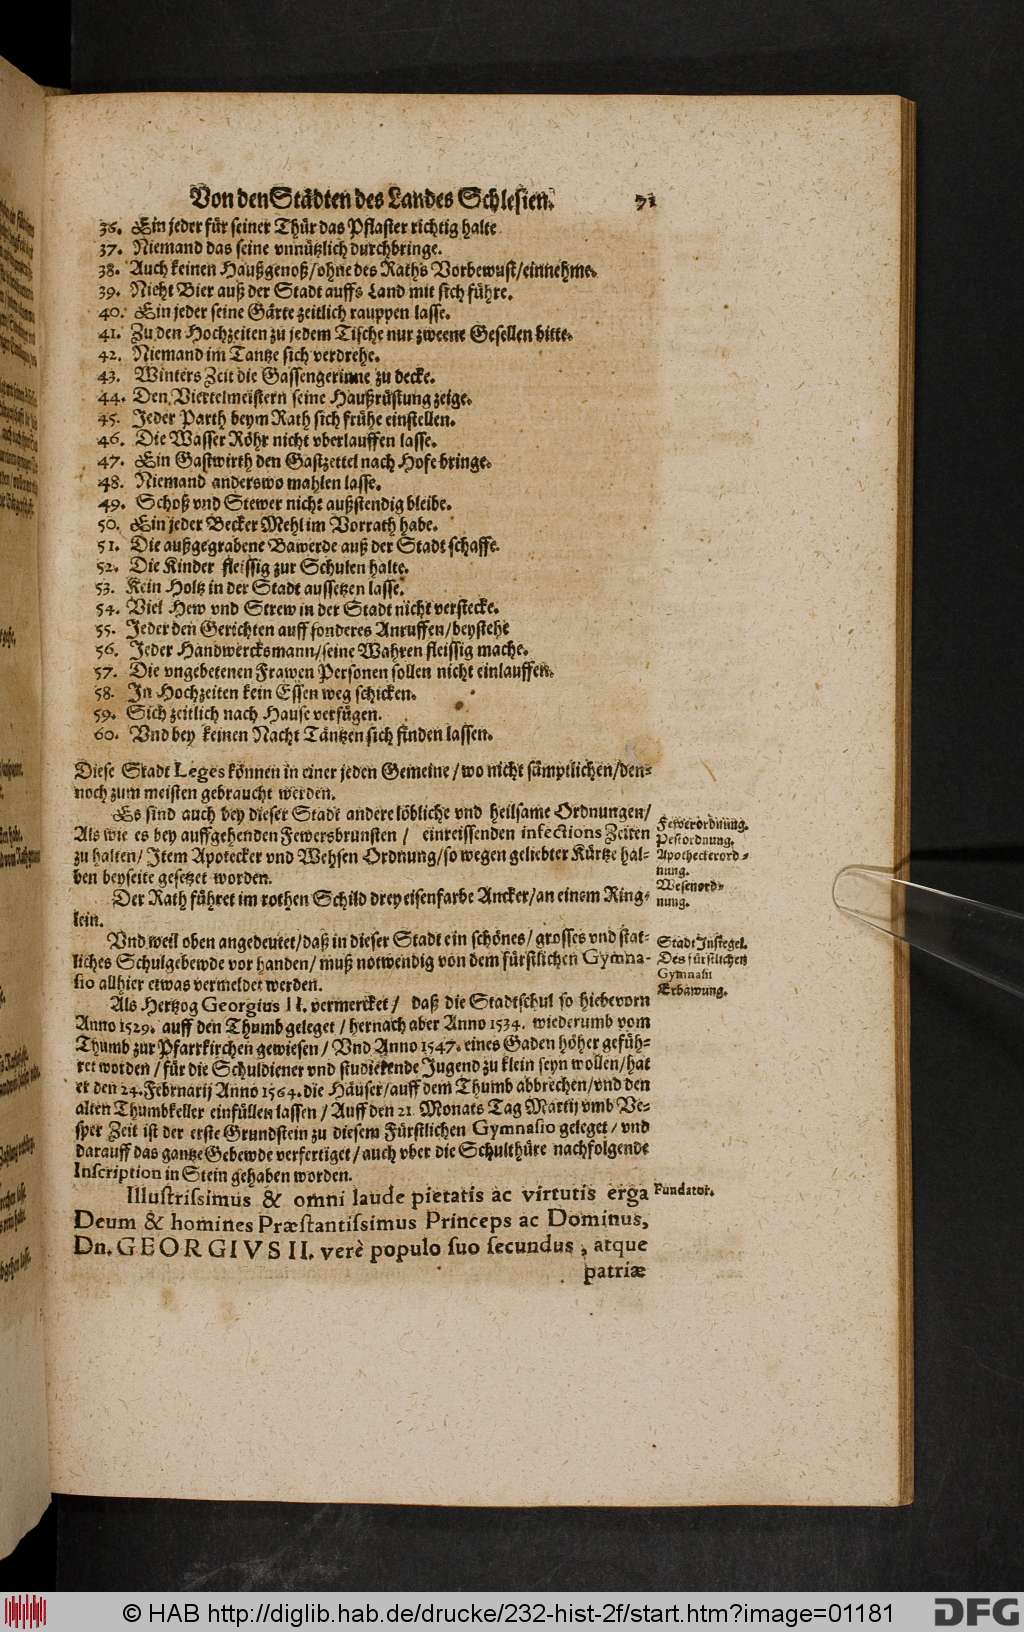 Von den Städten des Landes Schlesien. 71
36. Ein jeder für seiner Thür das Pflaster richtig halte
37. Niemand das seine vnnützlich durchbringe.
38. Auch keinen Haußgenoß/ohne des Raths Vorbewust/einnehme.
39. Nicht Bier auß der Stadt auffs Land mit sich führe.
40. Ein jeder seine Gärte zeitlich rauppen lasse.
41. Zu den Hochzeiten zu jedem Tische nur zweene Gesellen bitte.
42. Niemand im Tantze sich verdrehe.
43. Winters Zeit die Gassengerinne zu decke.
44. Den Viertelmeistern seine Haußrüstung zeige.
45. Jeder Parth beym Rath sich frühe einstellen.
46. Die Wasser Röhr nicht vberlauffen lasse.
47. Ein Gastwirth den Gastzettel nach Hofe bringe.
48. Niemand anderswo mahlen lasse.
49. Schoß vnd Stewer nicht außstendig bleibe.
50. Ein jeder Becker Mehl im Vorrath habe.
51. Die außgegrabene Bawerde auß der Stadt schaffe.
52. Die Kinder fleissig zur Schulen halte.
53. Kein Holtz in der Stadt aussetzen lasse.
54. Viel Hew vnd Strew in der Stadt nicht verstecke.
55. Jeder den Gerichten auff sonderes Anruffen/beystehe
56. Jeder Handwercksmann/seine Wahren fleissig mache.
57. Die vngebetenen Frawen Personen sollen nicht einlauffen.
58. In Hochzeiten kein Essen weg schicken.
59. Sich zeitlich nach Hause verfügen.
60. Vnd bey keinen Nacht Täntzen sich finden lassen.
Diese Stadt Leges können in einer jeden Gemeine/wo nicht sämptlichen/den-
noch zum meisten gebraucht werden.
Es sind auch bey dieser Stadt andere löbliche vnd heilsame Ordnungen/
Als wie es bey auffgehenden Fewersbrunsten / einreissenden infections Zeiten
zu halten/ Item Apotecker vnd Wehsen Ordnung/so wegen geliebter Kürtze hal-
ben beyseite gesetzet worden.
Fewerordnung.
Pestordnung.
Apotheckerord-
nung.
Wesenord-
nung.
Der Rath führet im rothen Schild drey eisenfarbe Ancker/an einem Ring-
lein.
Vnd weil oben angedeutet/daß in dieser Stadt ein schönes/ grosses vnd stat-
liches Schulgebewde vorhanden/ muß notwendig von dem fürstlichen Gymna-
sio allhier etwas vermeldet werden.
Stadt Insiegel.
Des fürstlichen
Gymnasii
Erbawung.
Als Hertzog Georgius II. vermercket/ daß die Stadtschul so hiebevorn
Anno 1529. auff den Thumb geleget / hernach aber Anno 1534. wiederumb vom
Thumb zur Pfarrkirchen gewiesen / Vnd Anno 1547. eines Gaden höher gefüh-
ret worden / für die Schuldiener vnd studierende Jugend zu klein seyn wollen/hat
er den 24. Februarij Anno 1564. die Häuser/auff dem Thumb abbrechen/vnd den
alten Thumbkeller einfüllen lassen / Auff den 21 Monats Tag Martij vmb Ve-
sper Zeit ist der erste Grundstein zu diesem Fürstlichen Gymnasio geleget / vnd
darauff das gantze Gebewde verfertiget/auch vber die Schulthüre nachfolgende
Inscription in Stein gehaben worden.
Illustrissimus & omni laude pietatis ac virtutis erga
Fundator.
Deum & homines Præstantissimus Princeps ac Dominus,
Dn. GEORGIVS II. verè populo suo secundus, atque
patriæ
© HAB http://diglib.hab.de/drucke/232-hist-2f/start.htm?image=01181
DFG